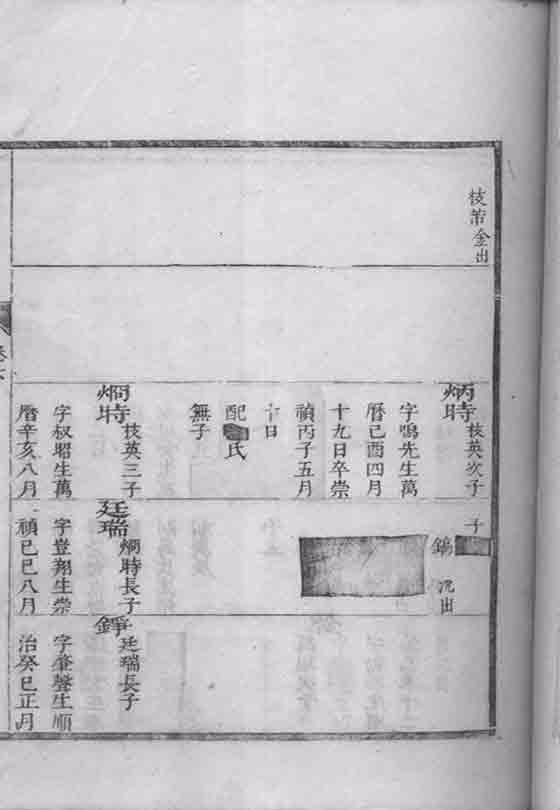 枝第金出
炳時
枝英次子
字鳴先生萬
曆己酉四月
十九日卒崇
禎丙子五月
十日
配
氏
無子
烱時
枝英三子
字叔昭生萬
曆辛亥八月
子
錦
出
廷瑞
烱時長子
字豈翔生崇
禎己巳八月
錚
廷瑞長子
字肇聲生順
治癸巳正月